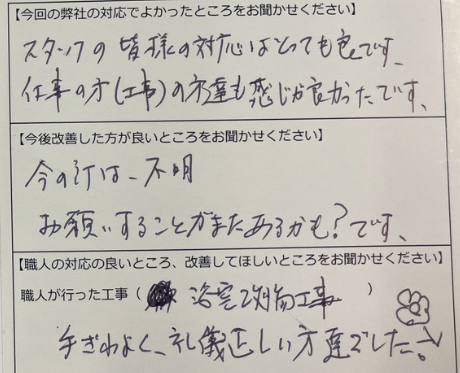 【今回の弊社の対応でよかったところをお聞かせください】
スタッフの皆様の対応はとっても良です、
仕事の方(工事)の方達も感じが良かったです、
【今後改善した方が良いところをお聞かせください】
今の所は、不明
お願いすることがまたあるかも?です、
【職人の対応の良いところ、改善してほしいところをお聞かせください】
職人が行った工事( 浴室 工事 )
手ぎわよく、礼儀正しい方達でした。